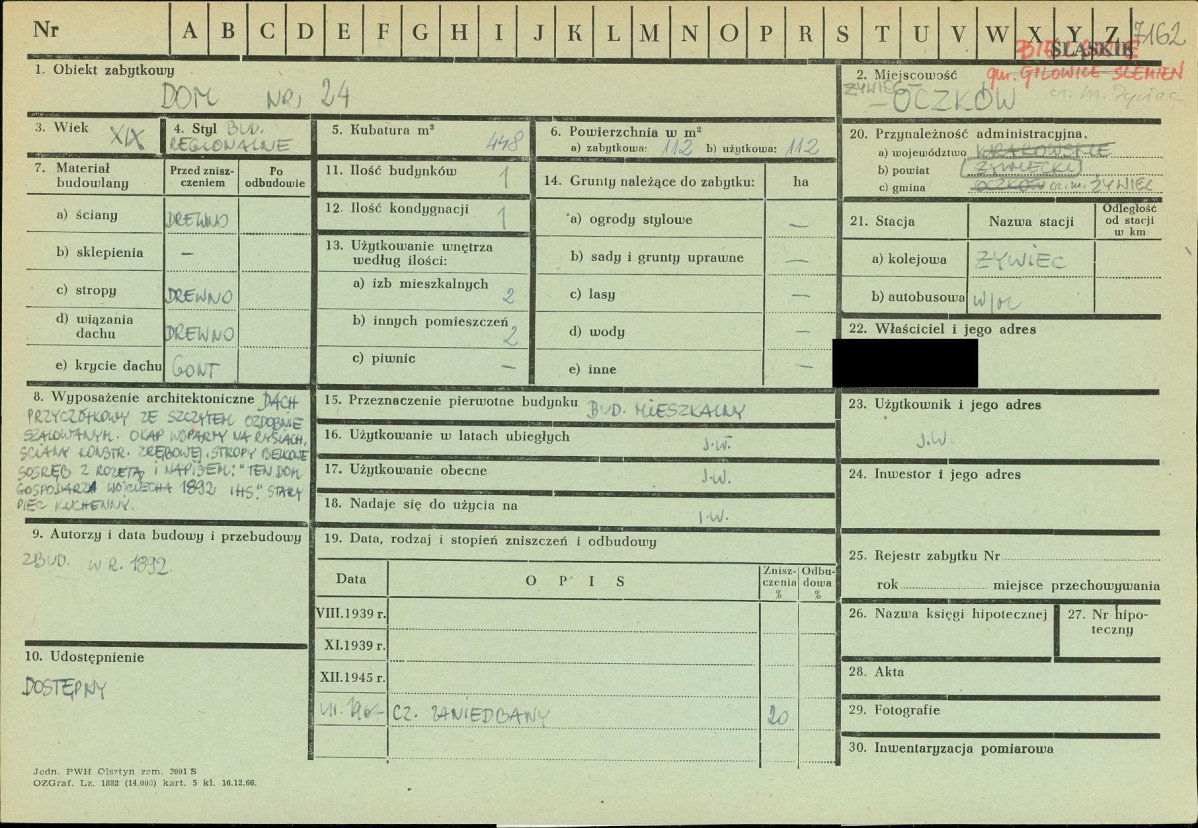 Nr A B C D E F G H I J K L M N O P R S T U V W X Y Z 7162
ŚLĄSKIE
gm. GILOWICE-ŚLEMIEŃ
1. Obiekt zabytkowy
DOM NR. 24
2. Miejscowość
ŻYWIEC - OCZKÓW
3. Wiek XIX
4. Styl BUD. REGIONALNE
5. Kubatura m³ 448
6. Powierzchnia w m²
a) zabytkowa: 112 b) użytkowa: 112
7. Materiał budowlany
Przed zniszczeniem
Po odbudowie
a) ściany DREWNO
b) sklepienia –
c) stropy DREWNO
d) wiązania dachu DREWNO
e) krycie dachu GONT
8. Wyposażenie architektoniczne DACH
PRZYCZÓŁKOWY ZE SZCZYTEM OZDOBNIE
SZALOWANYM. OKAP WSPARTY NA RYSIACH,
ŚCIANY KONSTR. ZRĘBOWEJ, STROPY BELKOWE
SOSRĘB Z ROZETĄ I NAPISEM: "TEN DOM
GOSPODARZA WOJCIECHA 1892 IHS." STARY
PIEC KUCHENNY.
9. Autorzy i data budowy i przebudowy
ZBUD. W R. 1892.
10. Udostępnienie
DOSTĘPNY
11. Ilość budynków 1
12. Ilość kondygnacji 1
13. Użytkowanie wnętrza według ilości:
a) izb mieszkalnych 2
b) innych pomieszczeń 2
c) piwnic –
14. Grunty należące do zabytku: ha
a) ogrody stylowe –
b) sady i grunty uprawne –
c) lasy –
d) wody –
e) inne –
15. Przeznaczenie pierwotne budynku BUD. MIESZKALNY
16. Użytkowanie w latach ubiegłych J.W.
17. Użytkowanie obecne J.W.
18. Nadaje się do użycia na J.W.
19. Data, rodzaj i stopień zniszczeń i odbudowy
Data OPIS Zniszczenia % Odbudowa %
VIII.1939 r.
XI.1939 r.
XII.1945 r.
CZ. ZANIEDBANY 20
20. Przynależność administracyjna.
a) województwo KRAKOWSKIE
b) powiat ŻYWIECKI
c) gmina OCZKÓW ŻYWIEC
21. Stacja Nazwa stacji Odległość od stacji w km
a) kolejowa ŻYWIEC
b) autobusowa
22. Właściciel i jego adres
23. Użytkownik i jego adres
J.W.
24. Inwestor i jego adres
25. Rejestr zabytku Nr
rok miejsce przechowywania
26. Nazwa księgi hipotecznej
27. Nr hipoteczny
28. Akta
29. Fotografie
30. Inwentaryzacja pomiarowa
Jedn. PWH Olsztyn zam. 3991 S
OZGraf. Lz. 1882 (14.000) kart. 5 kl. 16.12.66.